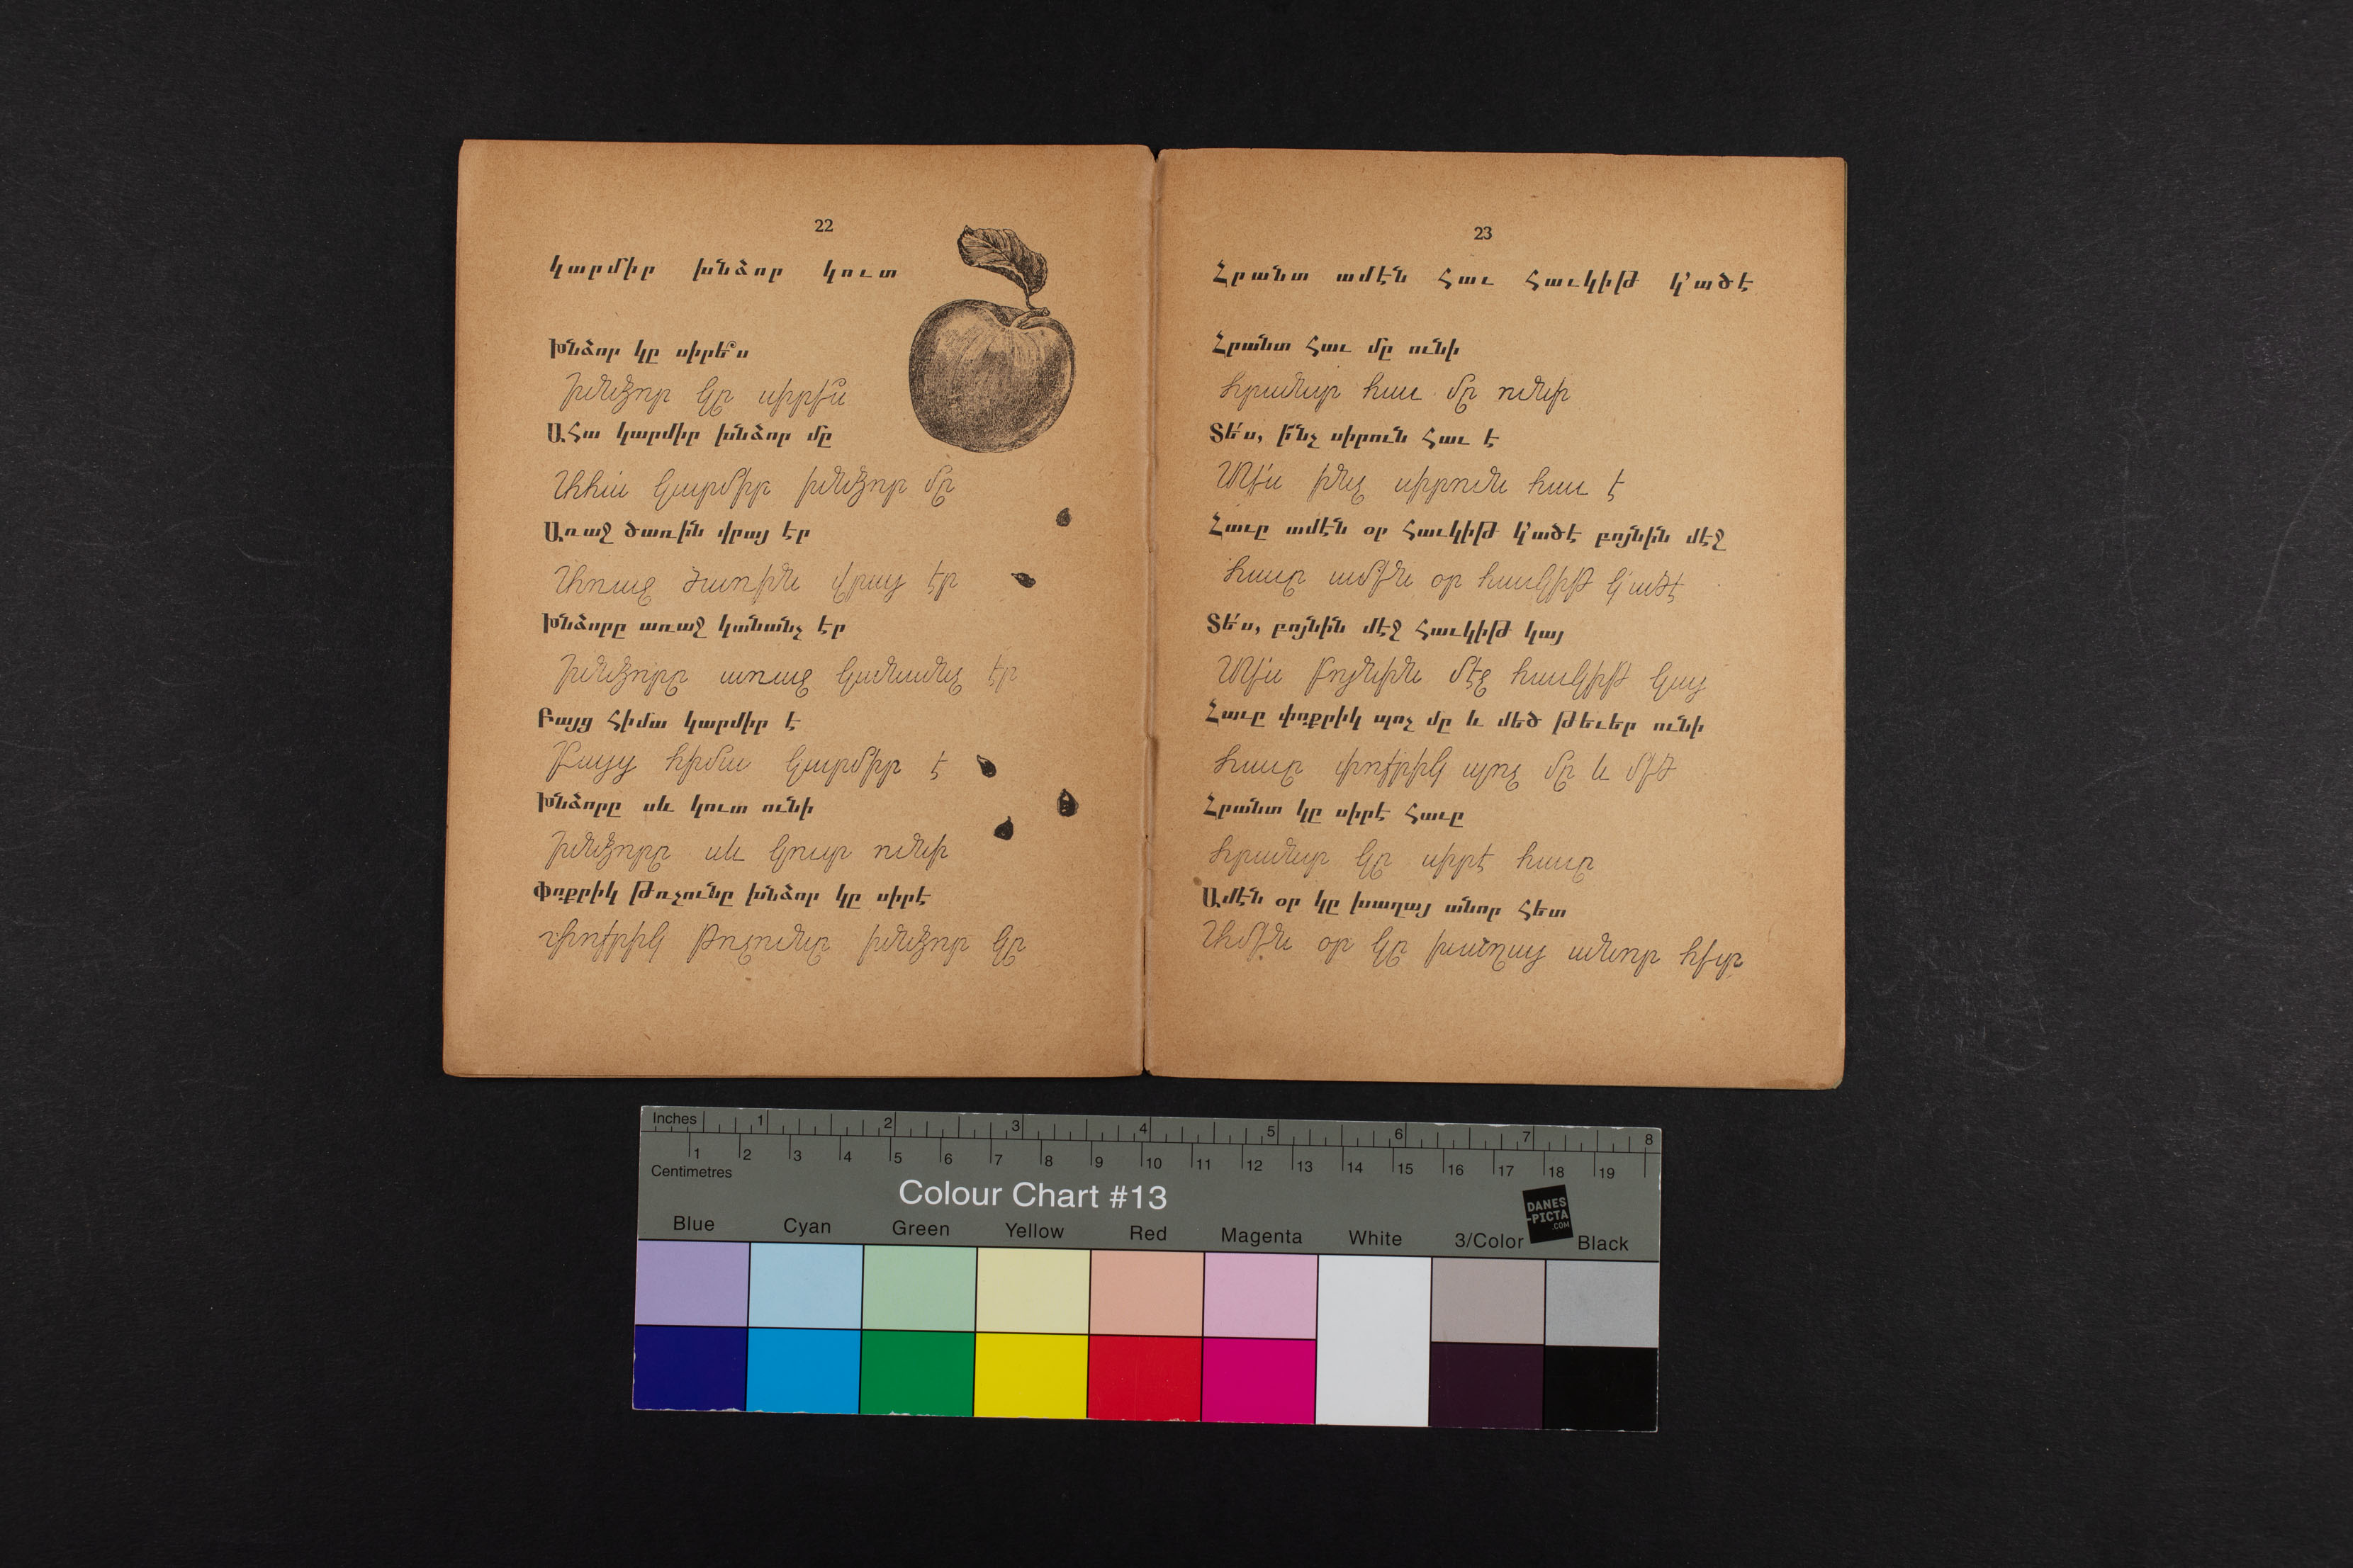 22
կարմիր խնձոր կուտ
Խնձոր կը սիրե՞ս
Խնձոր կը սիրե՞ս
Ահա կարմիր խնձոր մը
Ահա կարմիր խնձոր մը
Առաջ ծառին վրայ էր
Առաջ ծառին վրայ էր
Խնձորը առաջ կանանչ էր
Խնձորը առաջ կանանչ էր
Բայց հիմա կարմիր է
Բայց հիմա կարմիր է
Խնձորը սև կուտ ունի
Խնձորը սև կուտ ունի
Փոքրիկ թռչունը խնձոր կը սիրէ
Փոքրիկ թռչունը խնձոր կը
23
Հրանտ ամէն հաւ հաւկիթ կ՚ածէ
Հրանտ հաւ մը ունի
Հրանտ հաւ մը ունի
Տե՛ս, ի՜նչ սիրուն հաւ է
Տե՛ս ինչ սիրուն հաւ է
Հաւը ամէն օր հաւկիթ կ՚ածէ բոյնին մէջ
Հաւը ամէն օր հաւկիթ կ՚ածէ
Տե՛ս, բոյնին մէջ հաւկիթ կայ
Տե՛ս բոյնին մէջ հաւկիթ կայ
Հաւը փոքրիկ պոչ մը և մեծ թեւեր ունի
Հաւը փոքրիկ պոչ մը և մեծ
Հրանտ կը սիրէ հաւը
Հրանտ կը սիրէ հաւը
Ամէն օր կը խաղայ անոր հետ
Ամէն օր կը խաղայ անոր հետ
Inches 1 2 3 4 5 6 7 8
1 2 3 4 5 6 7 8 9 10 11 12 13 14 15 16 17 18 19
Centimetres
Colour Chart #13
DANES
-PICTA
.COM
Blue Cyan Green Yellow Red Magenta White 3/Color Black